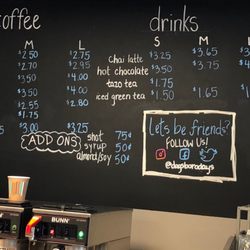 coffee drinks
M L S M
$2.50 $2.75 chai latte $3.25 $3.65 $3
$2.95 hot chocolate $3.50 $3.75
$3.50 $4.00 tazo tea $1.50
$4.00 iced green tea $1.50 $1.65 $1.
$2.55 $2.80
$1.75
$3.00 $3.25
ADD ONS shot 75¢
syrup 50¢
almond/soy 50¢
Let's be friends!
FOLLOW US!
BUNN